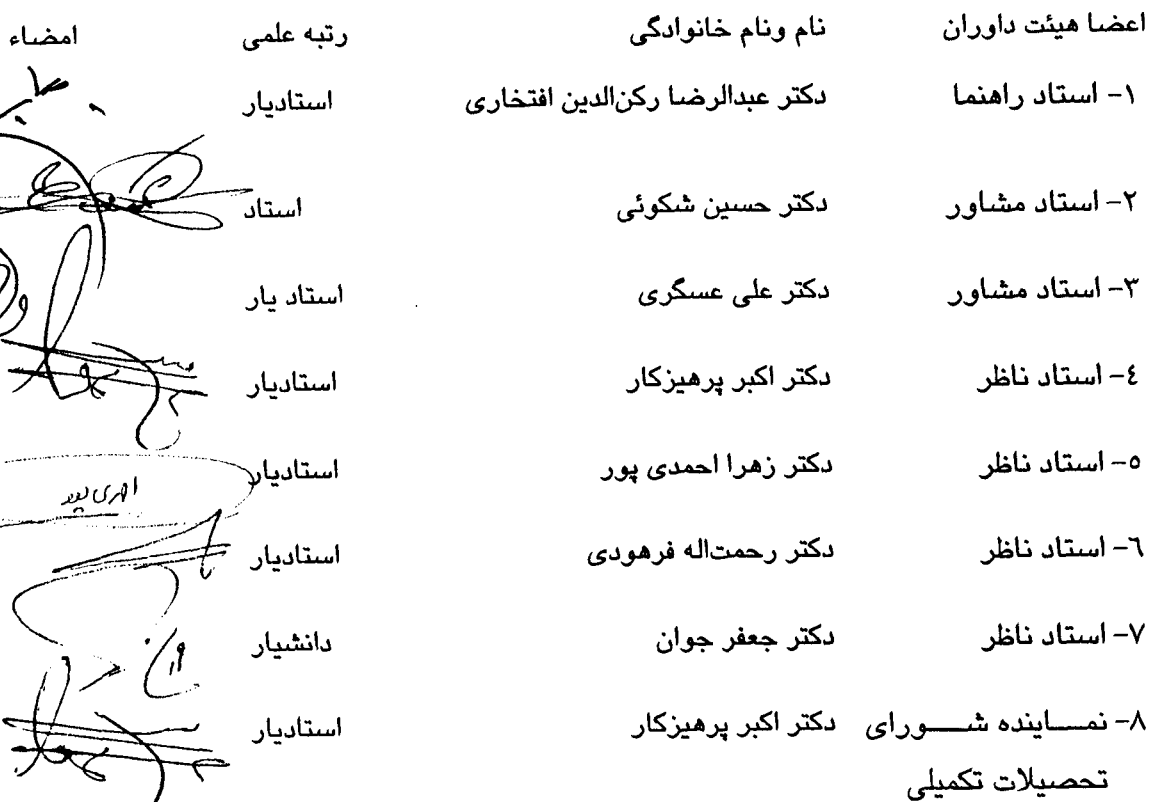 اعضا هیئت داوران نام ونام خانوادگی رتبه علمی امضاء
۱- استاد راهنما دکتر عبدالرضا رکن‌الدین افتخاری استادیار
۲- استاد مشاور دکتر حسین شکوئی استاد
۳- استاد مشاور دکتر علی عسگری استاد یار
٤- استاد ناظر دکتر اکبر پرهیزکار استادیار
٥- استاد ناظر دکتر زهرا احمدی پور استادیار
٦- استاد ناظر دکتر رحمت‌اله فرهودی استادیار
۷- استاد ناظر دکتر جعفر جوان دانشیار
۸- نمـــاینده شـــــورای دکتر اکبر پرهیزکار استادیار
تحصیلات تکمیلی